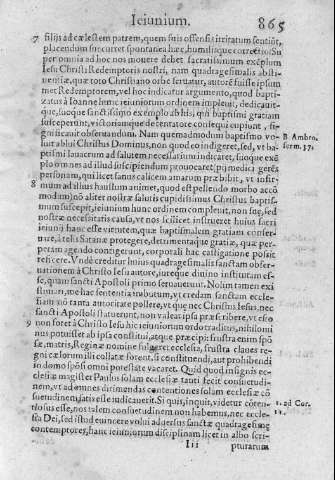 Ieiunium.
865
7 filijs ad cælestem patrem, quem suis offensis irritatum sentiūt,
placendum succurret spontanea hæc, humilisque correctio. Su
per omnia ad hoc nos mouere debet sacratissimum exēplum
Iesu Christi Redemptoris nostri, nam quadragesimalis absti-
nētiæ, quæ toto Christiano orbe seruatur, autorē fuisse ipsum
met Redemptorem, vel hoc indicatur argumento, quod bapti-
zatus à Ioanne hunc ieiuniorum ordinem impleuit, dedicauit-
que, suoque sanctissimo exemplo his, qui baptismi gratiam
susceperunt, victoriamque de tentatore consequi cupiunt,
gnificauit obseruandum. Nam quemadmodum baptismo vo- B. Ambro.
luit ablui Christus Dominus, non quod eo indigeret, sed, vt ba- serm. 37.
ptismi lauacrum ad salutem necessarium indicaret, suoque exē
plo omnes ad illud suscipiendum prouocaret (pij medici gerēs
personam, qui licet sanus calicem amarum præbibit, vt infir-
8 mum ad illius haustum animet, quod est pellendo morbo accō
modum) nō aliter nostræ salutis cupidissimus Christus baptis-
mum suscepit, ieiunium hunc ordinem compleuit, non suę, sed
nostræ necessitatis causa, vt nos scilicet instrueret huius sacri
ieiunij hanc esse virtutem, quæ baptismalem gratiam conser-
uare, à telis Satanæ protegere, detrimentaque gratiæ, quæ per-
peram agendo contigerunt, corporali hac castigatione possit
resicere. Vnde creditur huius quadragesimalis sanctam obser-
uationem à Christo Iesu autore, iureque diuino institutam es-
se, quam sancti Apostoli primo seruauerunt. Nolim tamen exi
stimari, me hac sententia imbutum, vt credam sanctam eccle-
siam nō tanta autoritate pollere, vt quæ nec Christus Iesus, nec
sancti Apostoli statuerunt, non valeat ipsa præscribere, vt etsi
9 non foret à Christo Iesu hic ieiuniorum ordo traditus, nihilomi
nus potuisset ab ipsa constitui, atque præcipi: frustra enim spō
sæ, matris, Reginæ nomine fulgeret ecclesia, frustra claues re-
gni cælorum illi collatæ forent, si constituendi, aut prohibendi
in domo spōsi omni potestate vacaret. Quid quod insignis ec-
clesiæ magister Paulus solam ecclesiæ tanti fecit consuetudi-
nem, vt ad omnes dirimendas contentiones solam ecclesiæ cō
suetudinem satis esse iudicauerit. Si quis, inquit, videtur cōten- 1. ad Cor.
tiosus esse, nos talem consuetudinem non habemus, nec eccle- 11.
sia Dei, sed istud euincere volui aduersus sanctæ quadragesimę
contemptores, hanc ieiuniorum disciplinam licet in albo scri-
Iii
pturarum